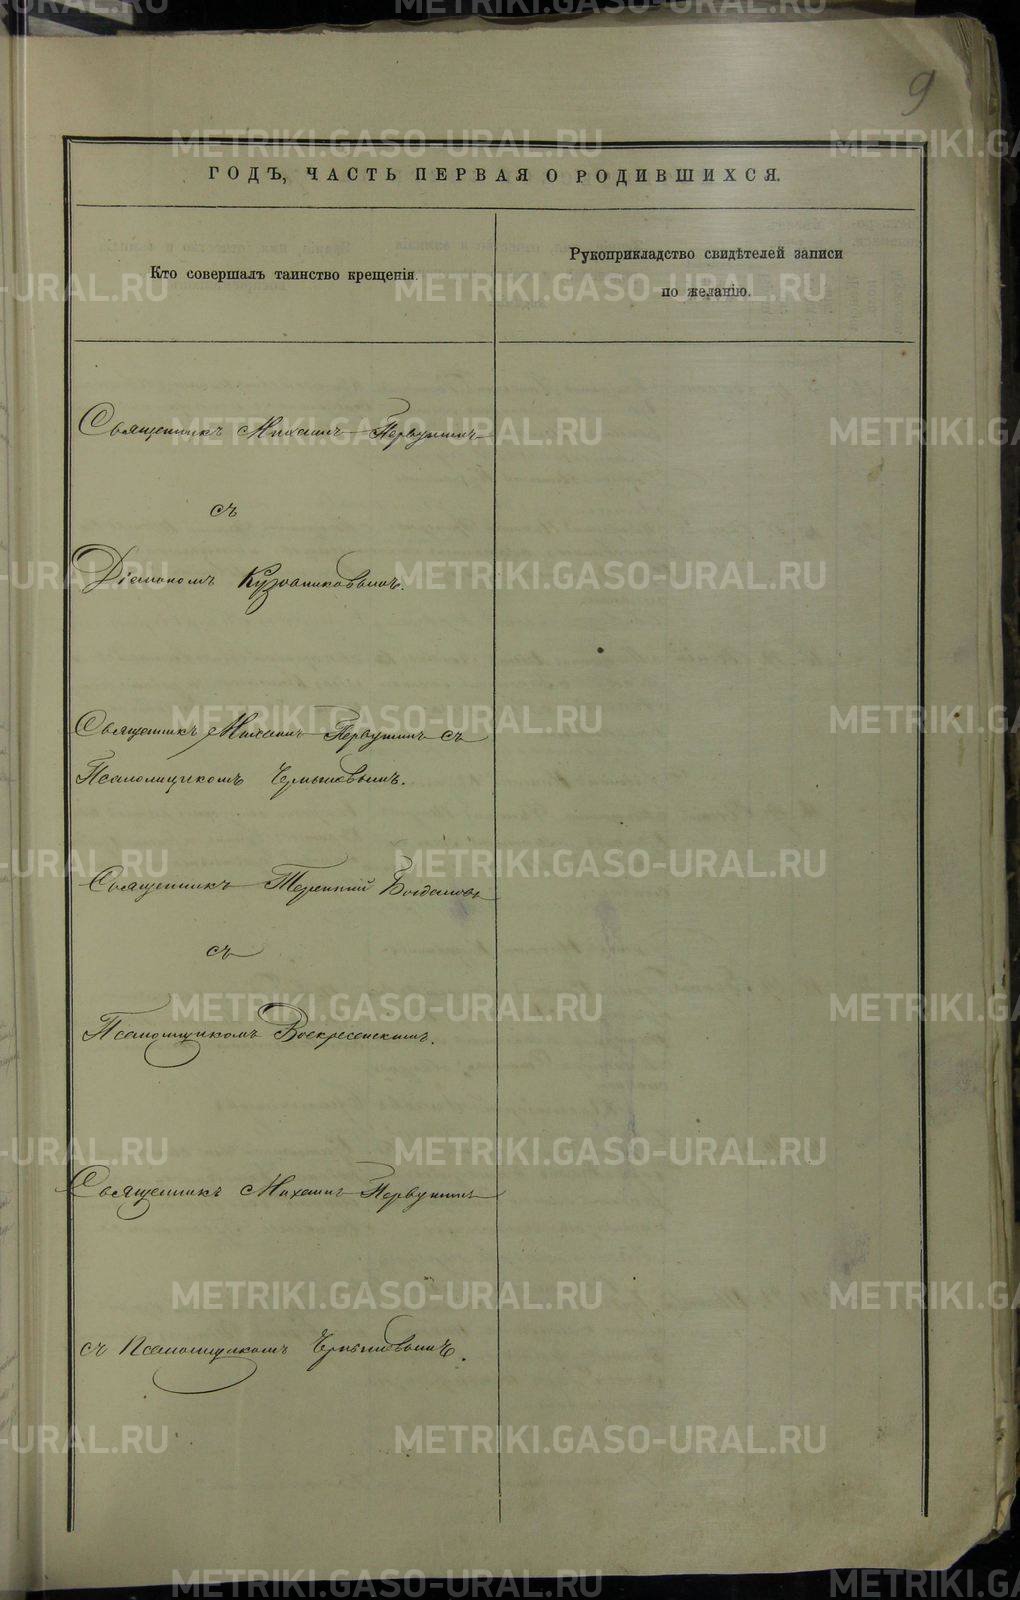 9
ГОДЪ, ЧАСТЬ ПЕРВАЯ О РОДИВШИХСЯ.
Кто совершалъ таинство крещенія.
Рукоприкладство свидѣтелей записи
по желанію.
Священникъ Михаилъ Первушинъ
съ
Діакономъ
Священникъ Михаилъ Первушинъ съ
Псаломщикомъ
Священникъ Терентій Богдановъ
съ
Псаломщикомъ Воскресенскимъ.
Священникъ Михаилъ Первушинъ
съ Псаломщикомъ
METRIKI.GASO-URAL.RU